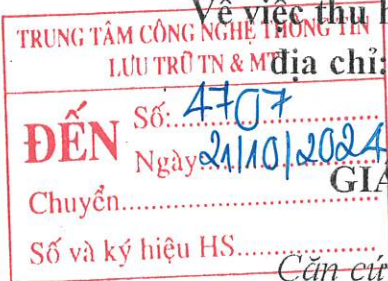 Về việc thu h
TRUNG TÂM CÔNG NGHỆ THÔNG TIN
LƯU TRỮ TN & MT
địa chỉ:
ĐẾN
Số: 4707
Ngày 21/10/2024
GIÁ
Chuyển
Số và ký hiệu HS
Căn cứ